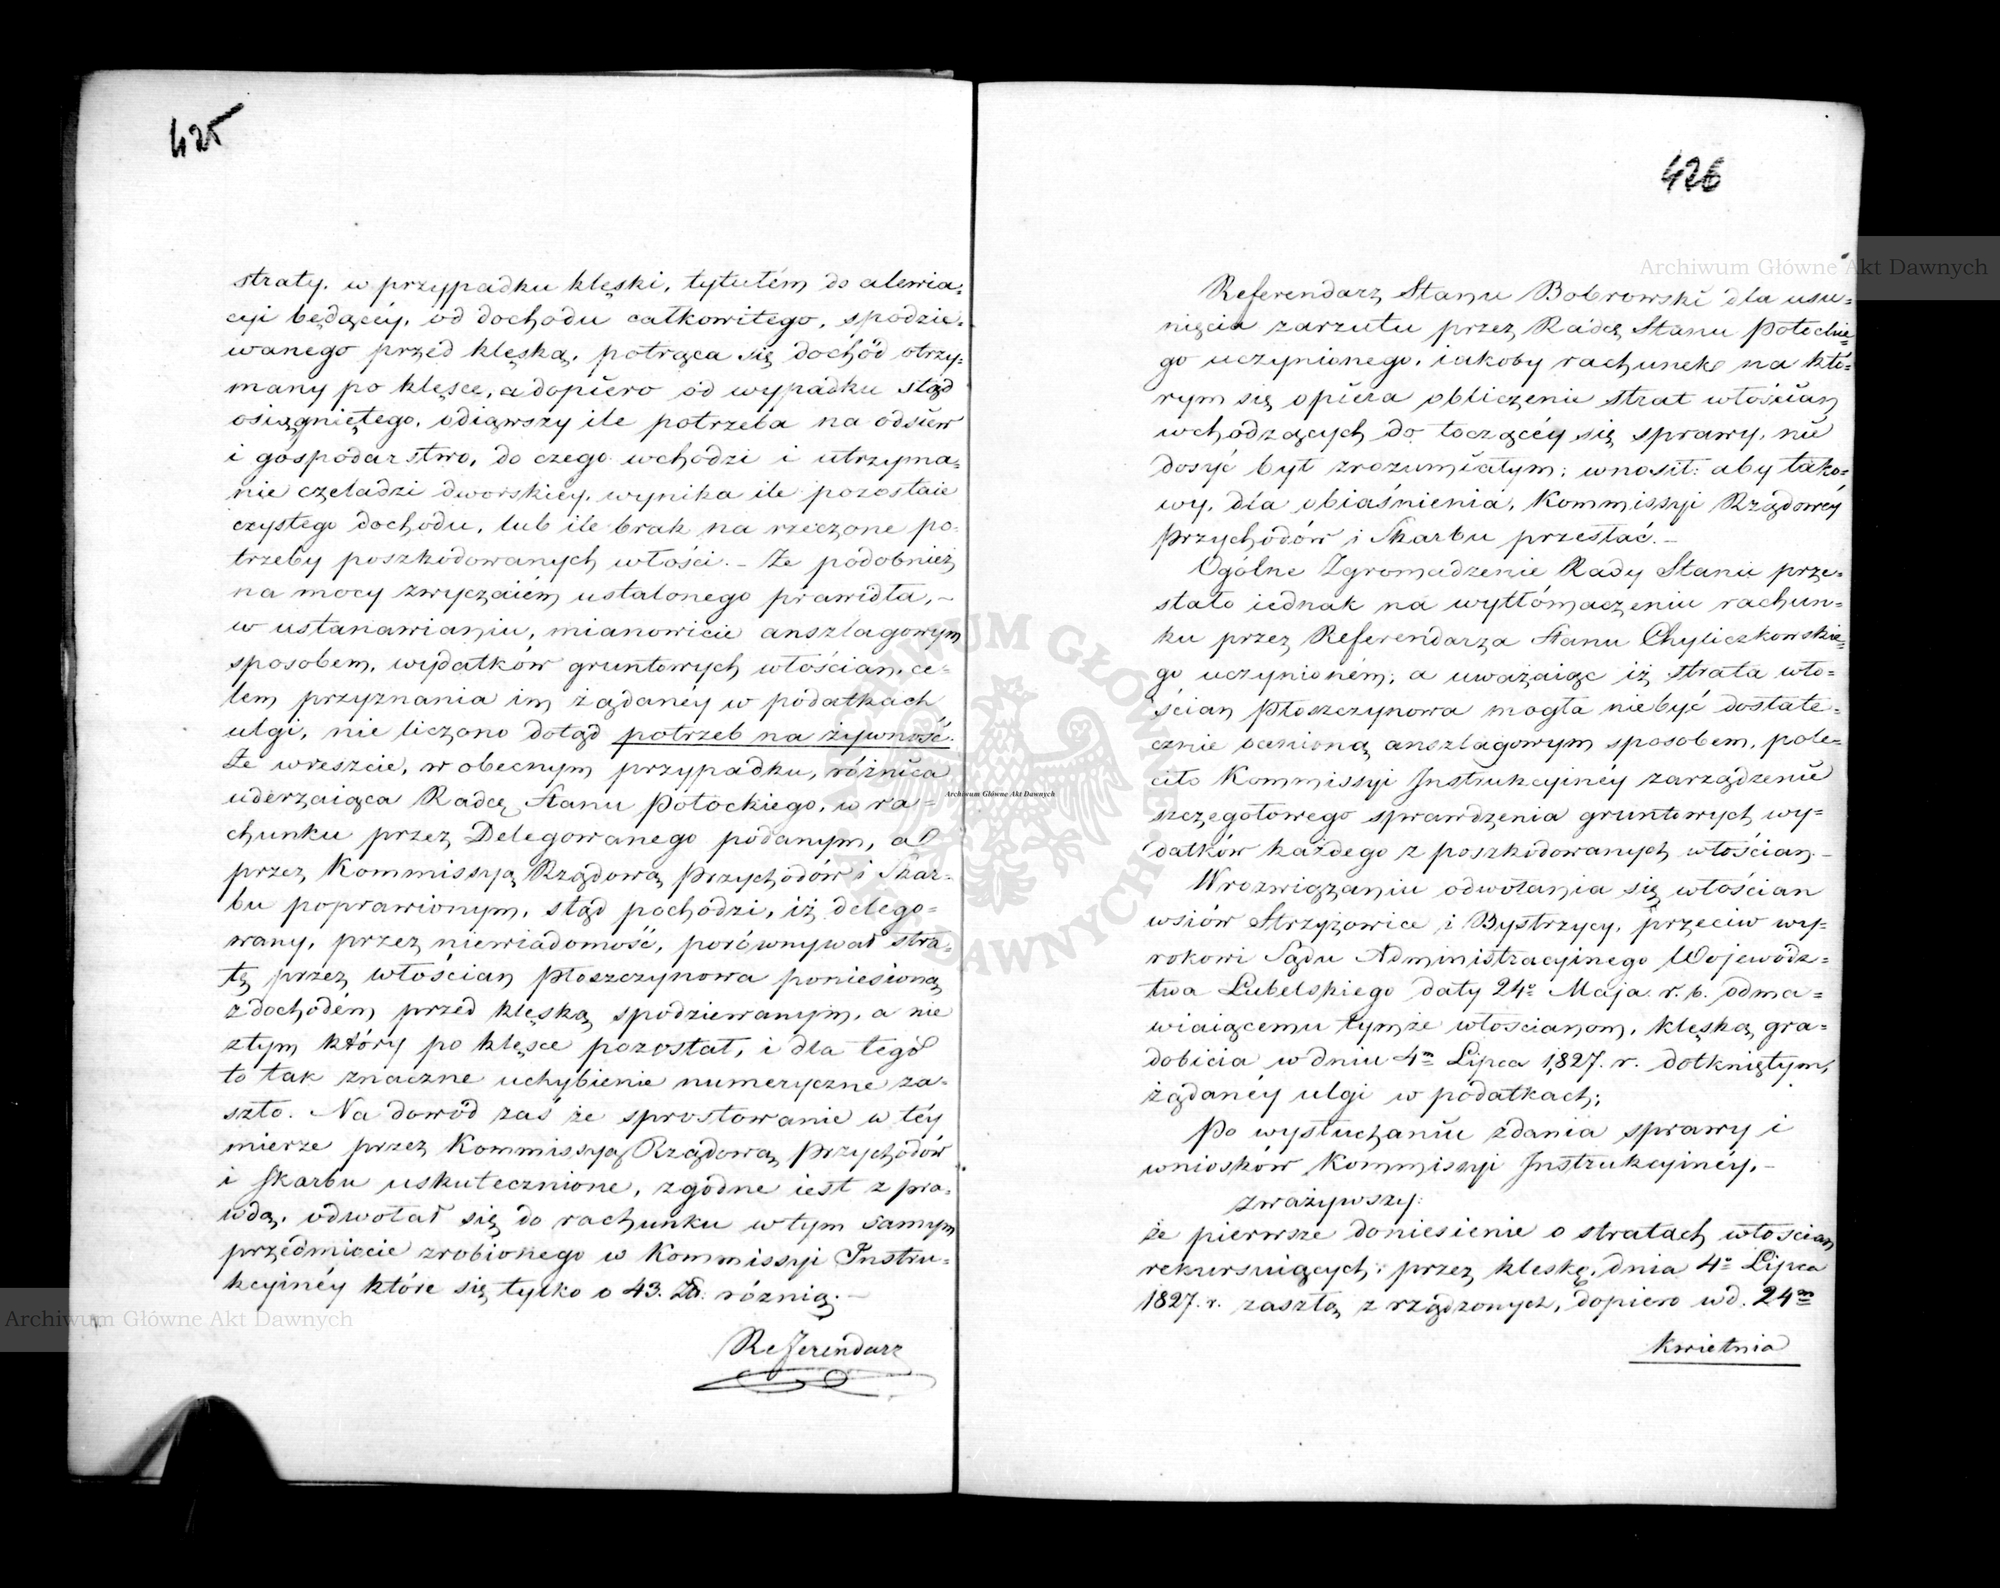 425
straty, w przypadku klęski, tytułém do alewia-
cyi będącéy, od dochodu całkowitego, spodzie-
wanego przed klęską, potrąca się dochód otrzy-
many po klęsce, a dopiero od wypadku stąd
osiągniętego, odiąwszy ile potrzeba na odsiew
i gospodarstwo, do czego wchodzi i utrzyma-
nie czeladzi dworskiey, wynika ile pozostaie
czystego dochodu, lub ile brak na rzeczone po-
trzeby poszkodowanych włości. – Że podobnież
na mocy zwyczaiém ustalonego prawidła, –
w ustanawianiu, mianowicie anszlagowym
sposobem, wydatków gruntowych włościan, ce-
lem przyznania im żądanéy w podatkach
ulgi, nie liczono dotąd potrzeb na żywność.
Że wreszcie, w obecnym przypadku, różnica
uderzaiąca Radcę Stanu Potockiego, w ra-
chunku przez Delegowanego podanym, a
przez Kommissyą Rządową Przychodów i Skar-
bu poprawionym, stąd pochodzi, iż delego-
wany, przez niewiadomość, porównywał stra-
tę przez włościan Płoszczynowa poniesioną
z dochodém przed klęską spodziewanym, a nie
z tym który po klęsce pozostał, i dla tego
to tak znaczne uchybienie numeryczne za-
szło. Na dowód zaś że sprostowanie w téy
mierze przez Kommissyą Rządową Przychodów
i Skarbu uskutecznione, zgodne iest z pra-
wdą, odwołał się do rachunku w tym samym
przedmiocie zrobionego w Kommissyi Instru-
kcyinéy które się tylko o 43. Zł. różnią. –
Referendarz
426
Referendarz Stanu Bobrowski dla usu-
nięcia zarzutu przez Radcę Stanu Potockie-
go uczynionego, iakoby rachunek na któ-
rym się opiera obliczenie strat włościan
wchodzących do toczącéy się sprawy, nie
dosyć był zrozumiałym; wnosił: aby tako-
wy, dla obiaśnienia, Kommissyi Rządowéy
Przychodów i Skarbu przesłać. –
Ogólne Zgromadzenie Rady Stanu prze-
stało iednak na wytłómaczeniu rachun-
ku przez Referendarza Stanu Chyliczkowskie-
go uczynioném; a uważaiąc iż strata wło-
ścian Płoszczynowa mogła niebyć dostate-
cznie ocenioną anszlagowym sposobem, pole-
ciło Kommissyi Instrukcyinéy zarządzenie
szczegółowego sprawdzenia gruntowych wy-
datków każdego z poszkodowanych włościan. –
W rozwiązaniu odwołania się włościan
wsiów Strzyżowice i Bystrzycy, przeciw wy-
rokowi Sądu Administracyinego Wojewódz-
twa Lubelskiego daty 24o Maja r. b. odma-
wiaiącemu tymże włościanom, klęską gra-
dobicia w dniu 4m Lipca 1827. r. dotkniętym,
żądanéy ulgi w podatkach;
Po wysłuchaniu zdania sprawy i
wniosków Kommissyi Instrukcyinéy, –
zważywszy:
że pierwsze doniesienie o stratach włościan
rekursuiących; przez klęskę, dnia 4o Lipca
1827. r. zaszłą zrządzonych, dopiero w d. 24m
Kwietnia
Archiwum Główne Akt Dawnych
Archiwum Główne Akt Dawnych
Archiwum Główne Akt Dawnych
ARCHIWUM GŁÓWNE AKT DAWNYCH